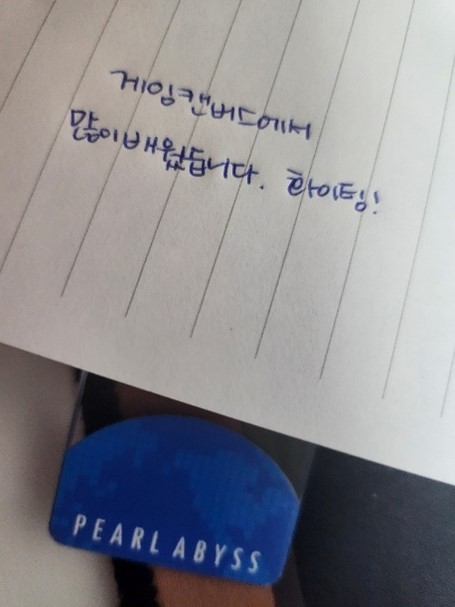 게임캔버드에서
많이 배웠습니다. 화이팅!
PEARL ABYSS